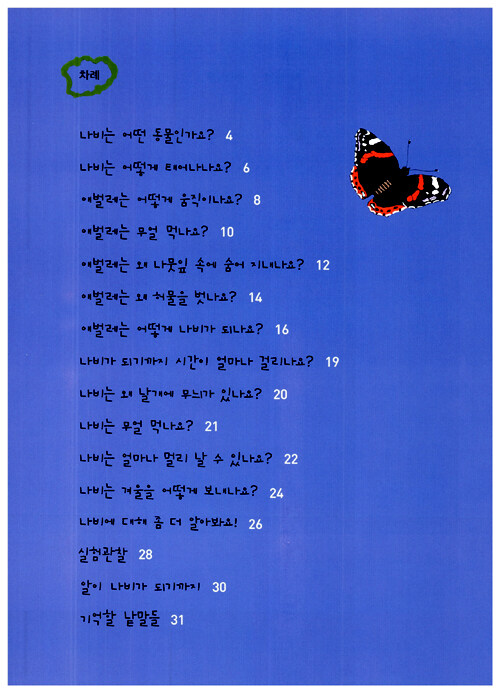 차례
나비는 어떤 동물인가요? 4
나비는 어떻게 태어나나요? 6
애벌레는 어떻게 움직이나요? 8
애벌레는 무얼 먹나요? 10
애벌레는 왜 나뭇잎 속에 숨어 지내나요? 12
애벌레는 왜 허물을 벗나요? 14
애벌레는 어떻게 나비가 되나요? 16
나비가 되기까지 시간이 얼마나 걸리나요? 19
나비는 왜 날개에 무늬가 있나요? 20
나비는 무얼 먹나요? 21
나비는 얼마나 멀리 날 수 있나요? 22
나비는 겨울을 어떻게 보내나요? 24
나비에 대해 좀 더 알아봐요! 26
실험관찰 28
알이 나비가 되기까지 30
기억할 낱말들 31